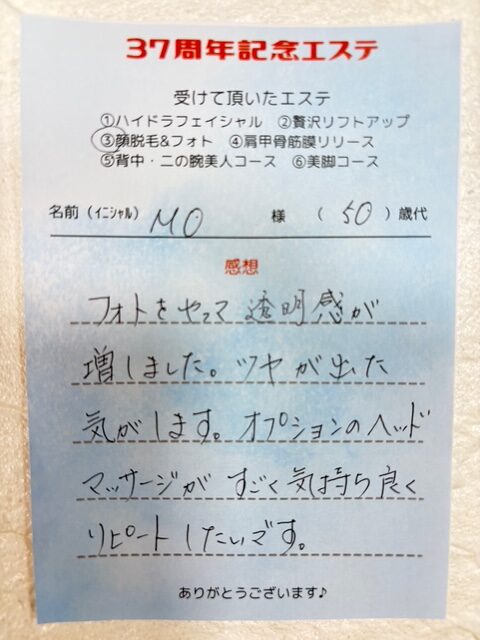 37周年記念エステ
受けて頂いたエステ
①ハイドラフェイシャル ②贅沢リフトアップ
③顔脱毛&フォト ④肩甲骨筋膜リリース
⑤背中・二の腕美人コース ⑥美脚コース
名前(イニシャル) MO 様 (50)歳代
感想
フォトをやって透明感が
増しました。ツヤが出た
気がします。オプションのヘッド
マッサージがすごく気持ち良く
リピートしたいです。
ありがとうございます♪